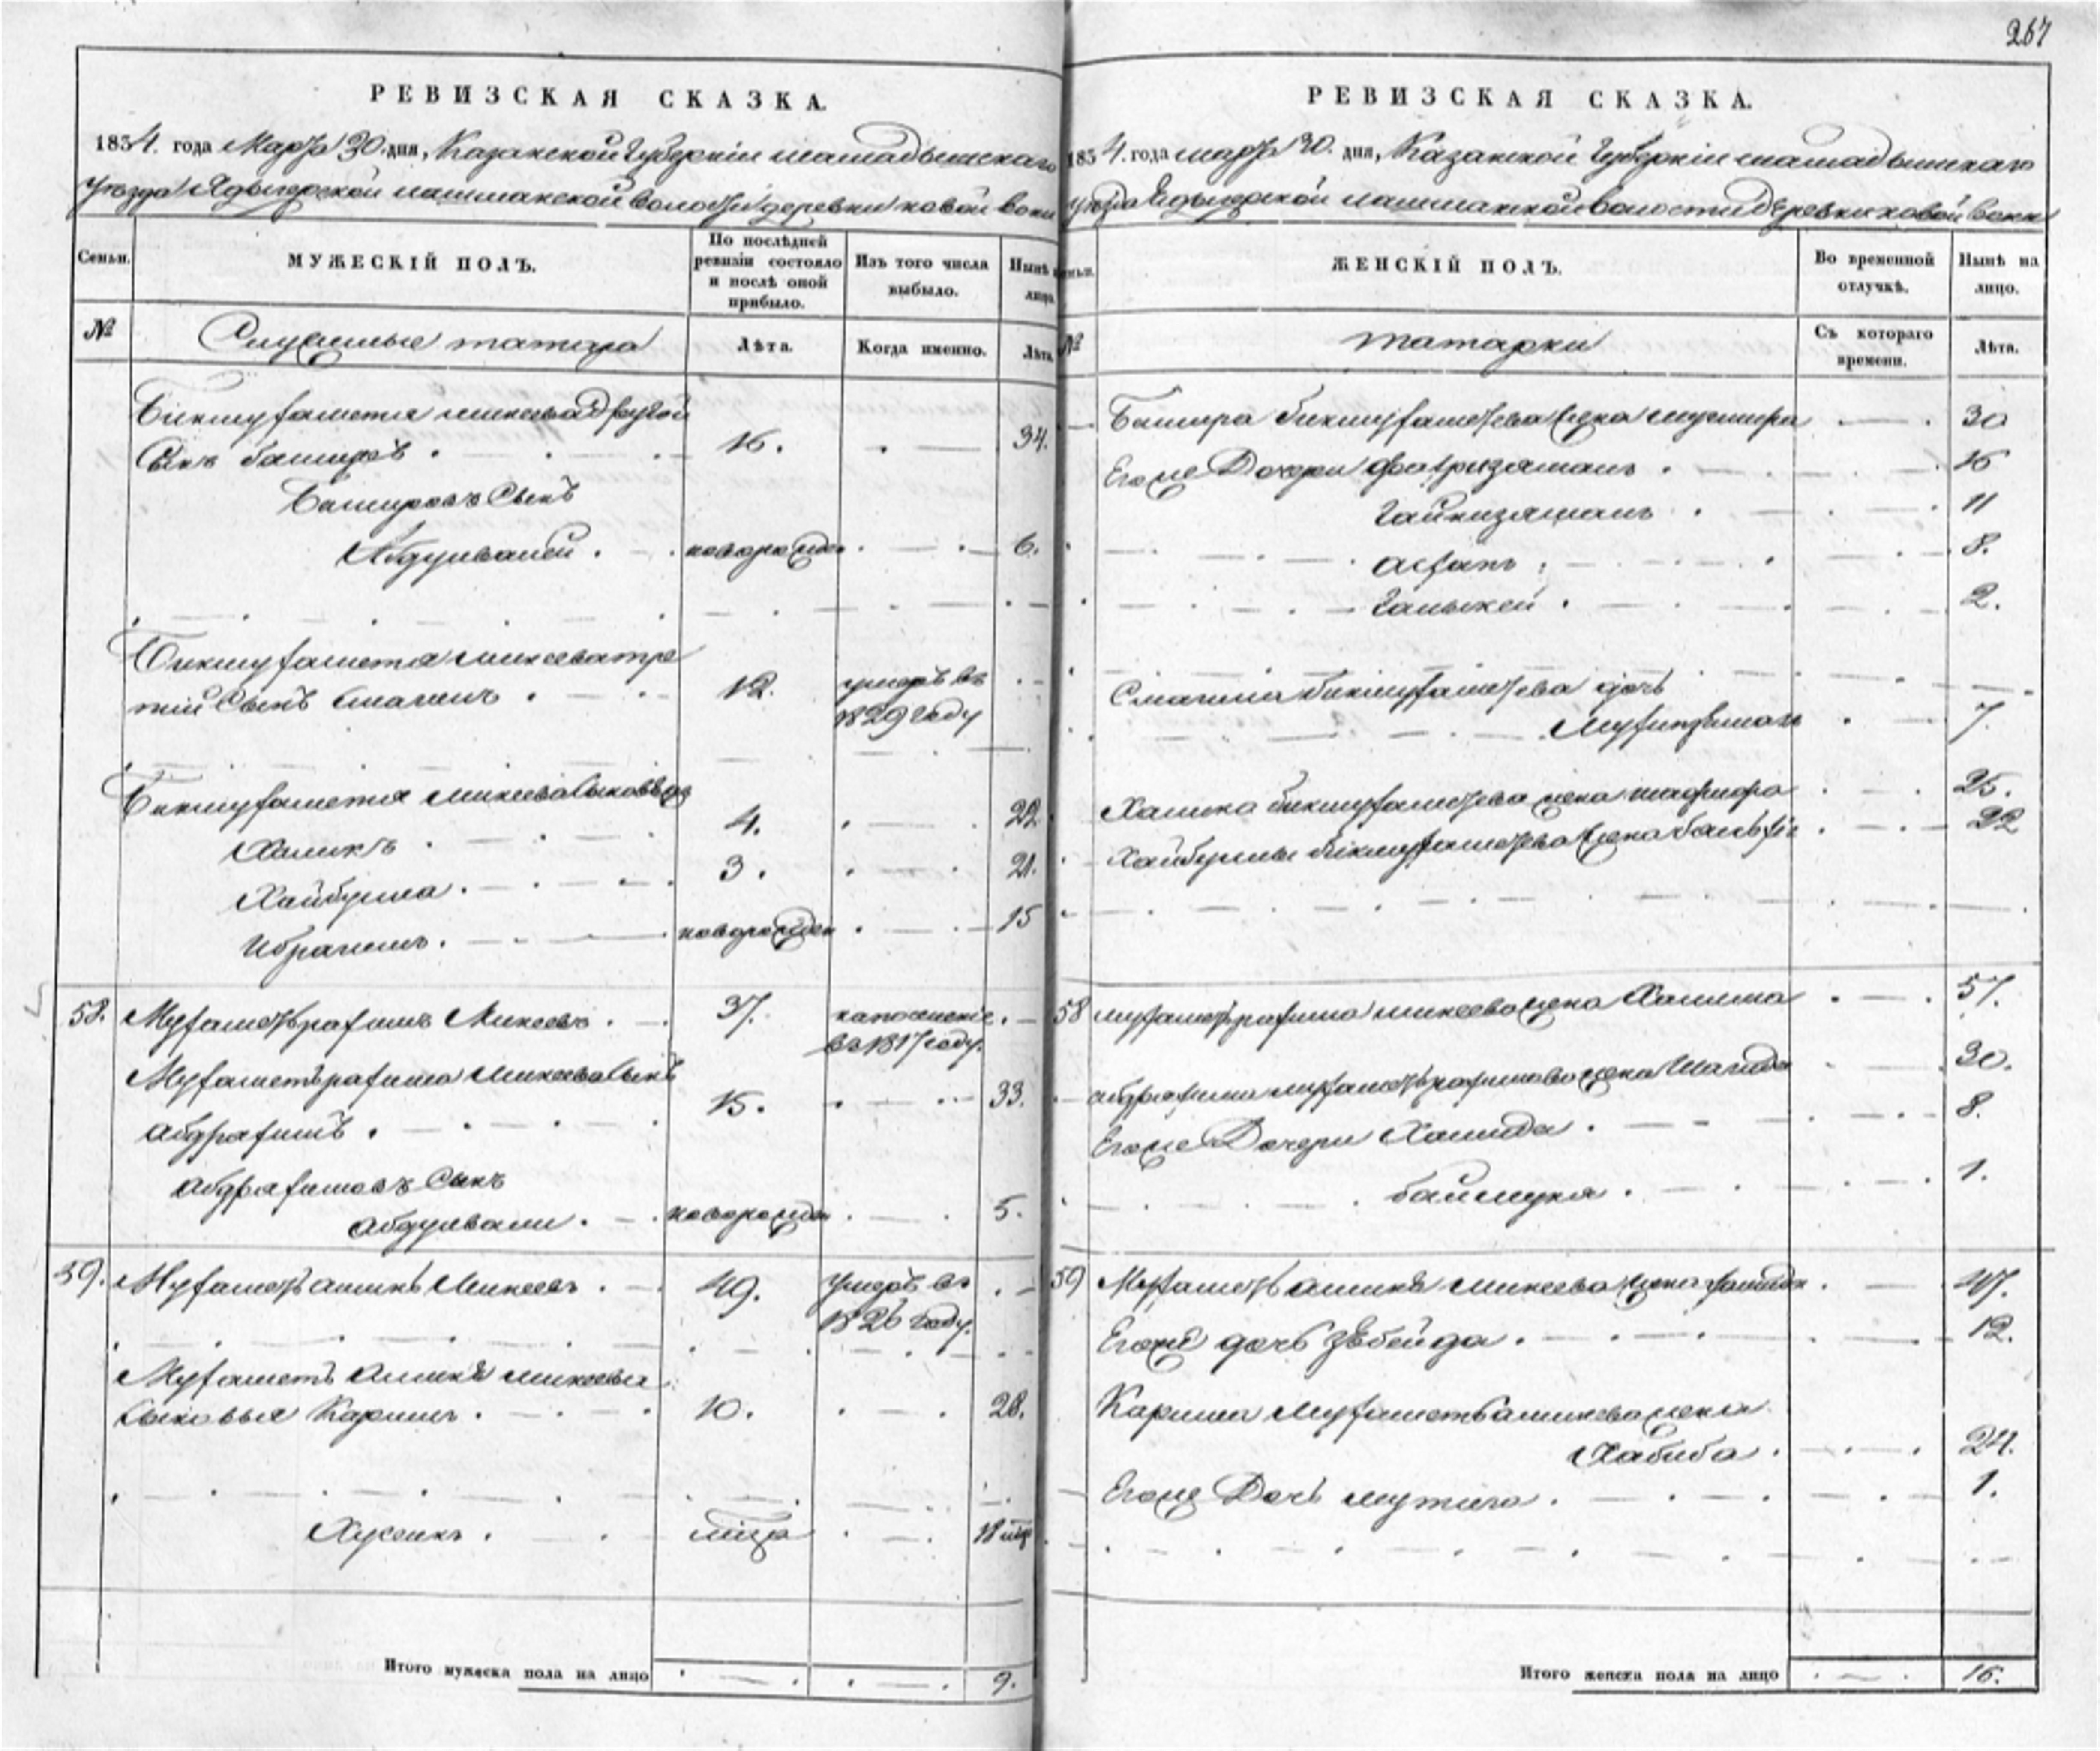 267
РЕВИЗСКАЯ СКАЗКА.
1834. года Марта 30. дня, Казанской Губерніи мамадышскаго
уѣзда Ядыгерской лашманской волости деревни новой
Семьи.
МУЖЕСКІЙ ПОЛЪ.
По послѣдней ревизіи состояло и послѣ оной прибыло.
Изъ того числа выбыло.
Нынѣ лицо.
№
Служилые татара
Лѣта.
Когда именно.
Лѣта.
Бикмухаметя микеева другой
Сынъ баширъ . 16. . — 34.
Башировъ Сынъ
Абдулвалей . новорожден . — 6.
Бикмухаметя микеева тре
тій Сынъ Смагилъ . 12. умеръ въ
1829 году
Бикмухаметя микеева Сыновья
Халикъ 4. . — 22
Хайбулла . 3. . — 21.
Ибрагимъ . новорожден . — 15
58. Мухаметьрахимъ Микеевъ . 37.
въ 1817 году.
Мухаметьрахима Микеева Сынъ
абдрахимъ . 15. . — 33.
абдрахимовъ Сынъ
абдулвали . новорожден . — 5.
59. Мухаметь аминь Микеевъ . 49. умеръ въ
1826 году.
Мухаметь аминя микеева
Сыновья Каримъ . 10. . — 28.
Хусеинъ . 18
Итого мужеска пола на лицо . — . . — . 9.
РЕВИЗСКАЯ СКАЗКА.
1834. года марта 30. дня, Казанской Губерніи мамадышскаго
уѣзда Ядыгерской лашманской волости деревни новой
№
ЖЕНСКІЙ ПОЛЪ.
Во временной отлучкѣ.
Нынѣ на лицо.
татарки
Съ котораго времени.
Лѣта.
Башира бикмухаметева жена . — . 30
Его же Дочери 16
11
8.
2.
Смагила бикмухаметева дочь
7.
Халика бикмухаметева жена 25.
Хайбуллы бикмухаметева жена 22
58 мухаметьрахима микеева жена Халима . — . 57.
абдрахима мухаметьрахимова жена 30.
Его же Дочери Хамида . 8.
1.
59 Мухаметь аминя Микеева жена 47.
Его же дочь зѣбейда . 12.
Карима Мухаметь аминева жена
Хабиба . 24.
Его же Дочь 1.
Итого женска пола на лицо . — . 16.